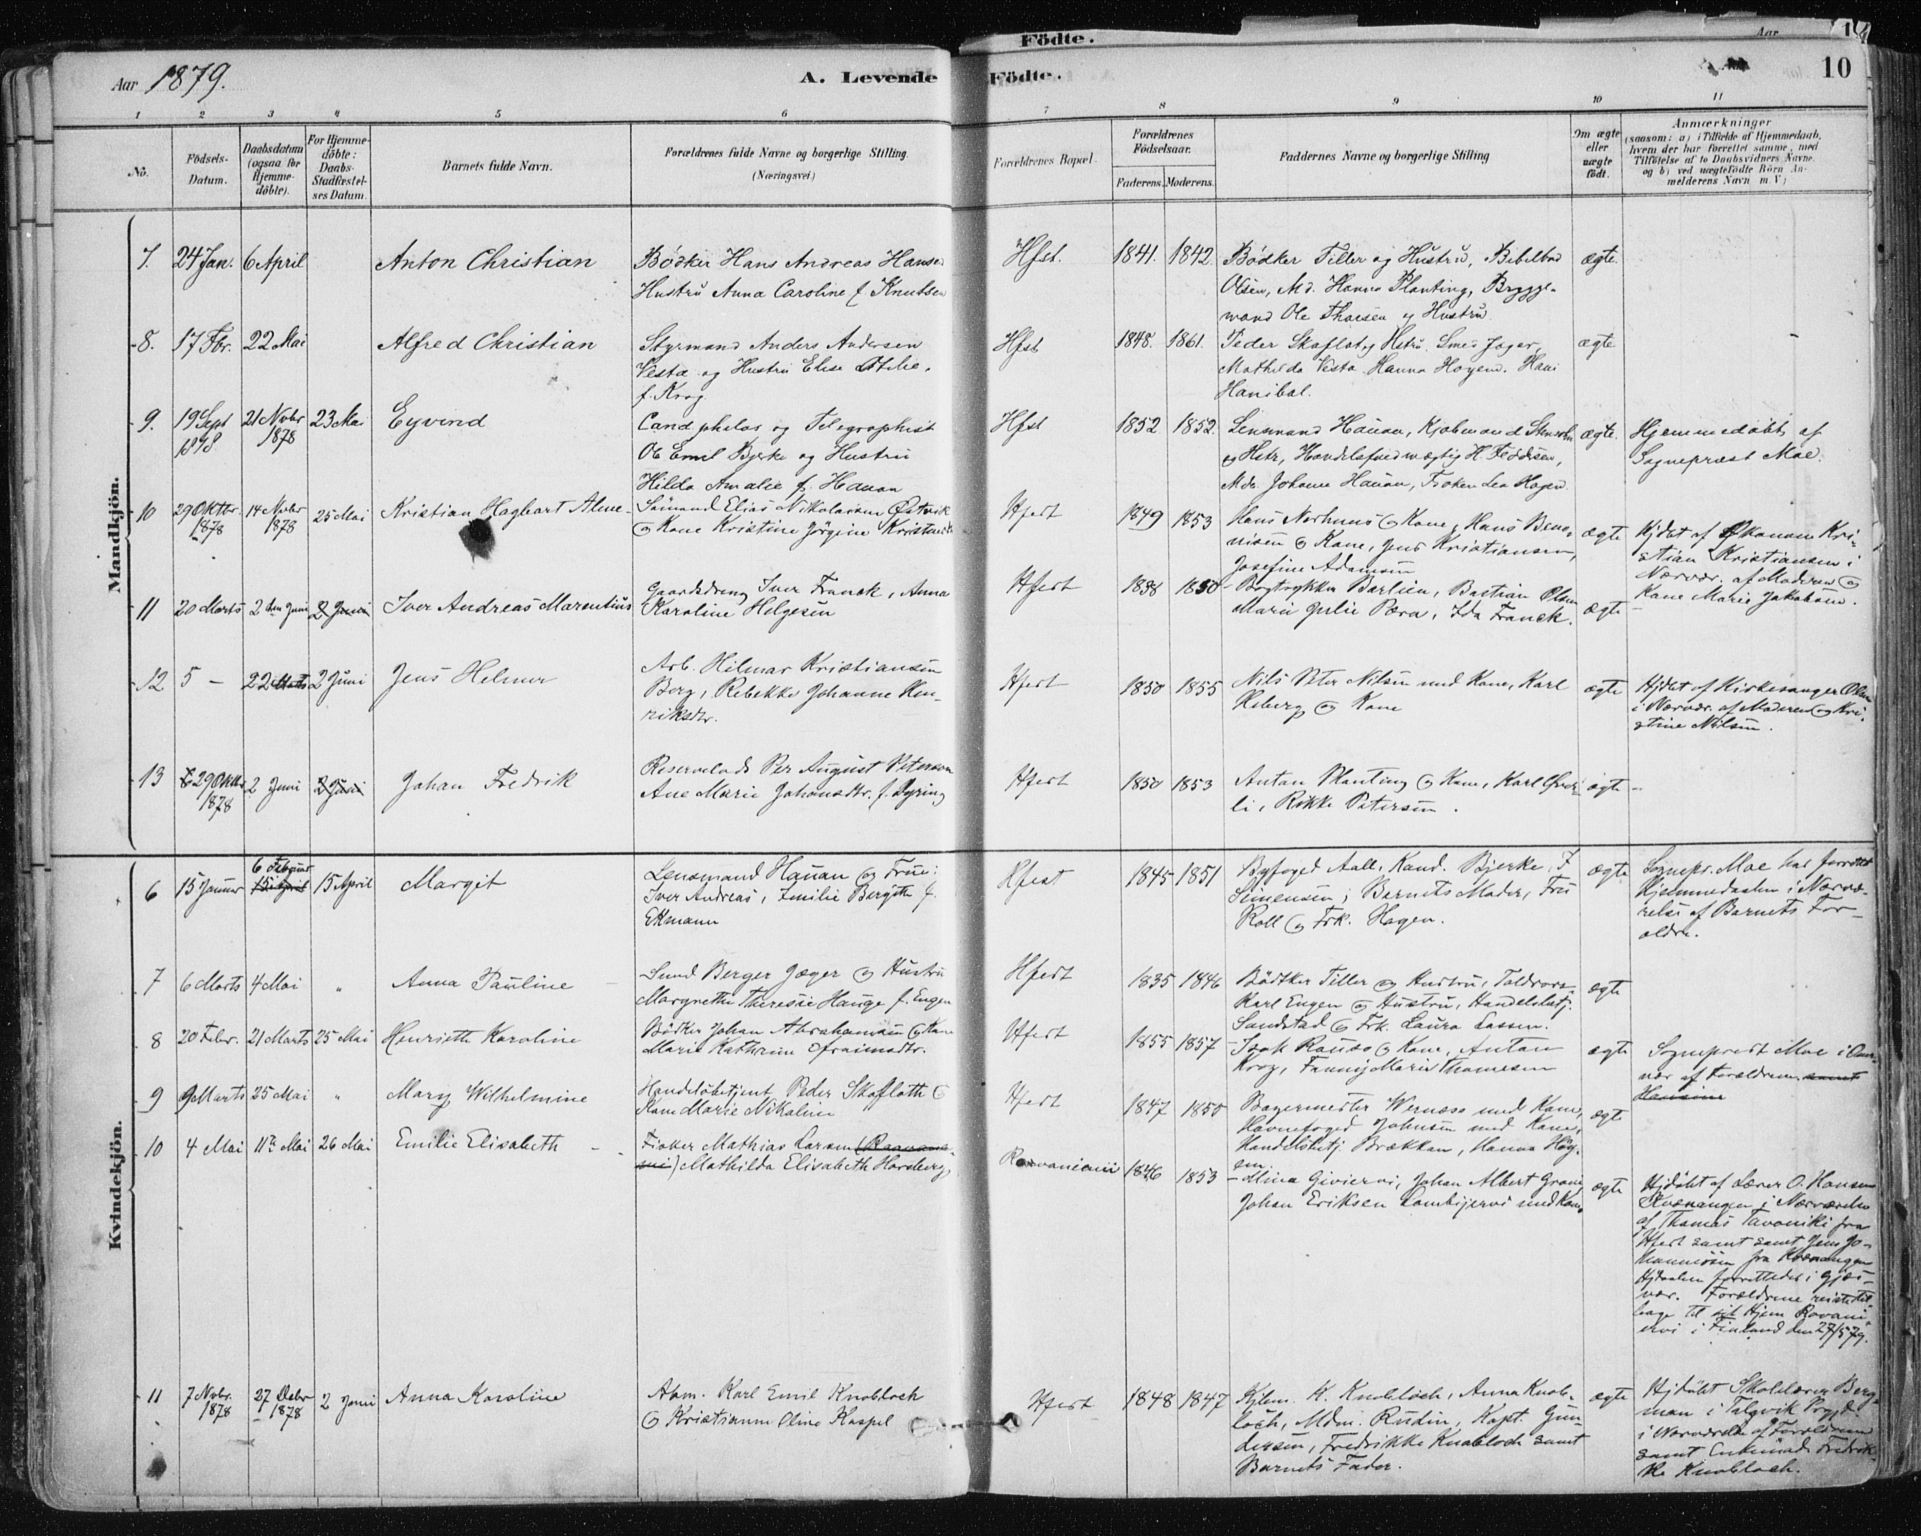 Födte.
Aar 1879.
A. Levende Födte.
10
1 2 3 4 5 6 7 8 9 10 11
No.
Födsels-Datum.
Daabsdatum (ogsaa for Hjemme-döbte).
For Hjemme-döbte: Daabs-Stadfæstel-ses Datum.
Barnets fulde Navn.
Forældrenes fulde Navne og borgerlige Stilling. (Næringsvei.)
Forældrenes Bopæl.
Forældrenes Födselsaar.
Faderens. Moderens.
Faddernes Navne og borgerlige Stilling
Om ægte eller uægte födt.
Anmærkninger
(saasom: a) i Tilfælde af Hjemmedaab,
hvem der har forrettet samme, med
Tilföielse af to Daabsvidners Navne,
og b) ved uægtefödte Börn An-
melderens Navn m. V.)
Mandkjön.
7. 24 Jan. 6 April Anton Christian
Bødker Hans Andreas Hansen
Hustru Anna Caroline f. Knutsen
Hfst. 1841. 1842.
Bødker Tiller og Hustru, Bibelbud
Olsen, Md. Hanna Planting, Brygge-
mand Ole Thorsen og Hustru
ægte.
8. 17 Fbr. 22 Mai Alfred Christian
Styrmand Anders Andersen
Vesta og Hustru Elise Otelie,
f. Krog
Hfst 1848. 1861.
Peder Skaflot og Hstru. Smed Jæger,
Mathilda Vesta Hanna Hoyem, Hans
Hanibal.
ægte
9. 19 Sept 1878 21 Nvbr 1878 23 Mai Eyvind
Cand philos og Telegraphist
Ole Emil Bjerke og Hustru
Hilda Amalie f. Hauan
Hfst 1852 1852.
Lensmand Hauan, Kjøbmand
og Hstr, Handelsfuldmægtig H. Feddersen,
Mdm. Johanne Hauan, Frøken Lea Hagen
ægte.
Hjemmedøbt af
Sognepræst Moe.
10 29 Oktbr. 1878 14 Nvbr 1878 25 Mai Kristian Hagbart
Sömand Elias Nikolaisen Østvik
og Kone Kristine Jörgine
Hfest 1849 1853
Hans Norhuus og Kone, Hans Beno-
nisen og Kone, Jens Kristiansen,
Josefine Adamsen
ægte
Hjdbt af Kri-
stian Kristiansen i
Nærvær. af Moderen og
Kone Marie Jakobsen.
11 20 Marts 2den Juni 2 Juni Iver Andreas Marentius
Gaardsdreng Iver Franck, Anna
Karoline Helgesen
Hfest 1838 1850
Bogtrykker Barlien, Bastian Olsen
Marie Julie Bæra, Ida Franck.
ægte
12 5 – 22 Marts 2 Juni Jens Helmer
Arb. Hilmar Kristiansen
Berg, Rebekke Johanne Hen-
riksdtr.
Hfest 1850 1855
Nils Peter Nilsen med Kone, Karl
Heberg og Kone
ægte
Hjdbt af Kirkesanger Olsen
i Nærvær. af Moderen og Kri-
stine Nilsen.
13 29 Oktbr 1878 2 Juni 2 Juni Johan Fredrik
Per August Peterson
Ane Marie Johansdtr. f. Dyring
Hfest 1850 1853
Anton Planting og Kone, Karl Øver-
li, Rikke Petersen.
ægte –
Kvindekjön.
6 15 Januar 6 Februar 15 April 15 April Margit
Lensmand Hauan og Frue:
Iver Andreas, Emilie Bergitte f.
Ekmann
Hfest 1845 1851
Byfoged Aall, Kand. Bjerke, F.
Simensen, Barnets Moder, Fru
Roll og Frk. Hagen.
ægte
Sognepr. Moe har forrettet
Hjemmedaaben i Nærvæ-
relse af Barnets For-
ældre.
7 6 Marts 4 Mai " Anna Pauline –
Smed Berger Jæger og Hustru
Margrethe Theresie Hauge f. Engen
Hfest 1835 1846
Bödtker Tiller og Hustru, Toldvors.
Karl Engen og Hustru, Handelsbetj.
Sandstad og Frk. Laura Lassen.
ægte
8 20 Febr. 21 Marts 25 Mai Henriette Karoline
Bödker Johan Abrahamsen og Kone
Marie Kathrine Efraimsdtr.
Hfest 1855 1857
Isak Rouso og Kone, Anton
Krog, Fanny Marie Thomesen
ægte
Sogneprest Moe i Over-
vær af Forældrene, samt
9 9 Marts 25 Mai " Mary Wilhelmine
Handelsbetjent Peder Skafloth og
Kone Marie Nikoline
Hfest 1847 1850
Bagermester Wernæss med Kone,
Havnefoged Johnsen med Kone,
Handelsbetj. Brækkan, Hanna Hoy-
em
ægte
10 4 Mai 11te Mai 26 Mai Emilie Elisabeth –
Fisker Mathias Larsen
Mathilda Elisabeth Horsberg,
Rovaniemi 1846 1853
Mina Giviervi, Johan Albert Grane
Johan Eriksen Lombijervi med Kone,
ægte
Hjdöbt af Lærer O. Hansen
Kvænangen i Nærværelse
af Thomas Tavoniki fra
Hfest samt samt Jens Jo-
hannesen fra Kvænangen
Hjdaaben forrettedes i Gjæs-
vær. Forældrene reiste til-
bage til sit Hjem Rovani-
ervi i Finland den 27/5 79.
11 7 Nvbr. 1878 27 Desbr 1878 2 Juni Anna Karoline
Karl Emil Knobloch
og Kristianne Oline Kaspel
Hfest 1848 1847
Kjlem. K. Knobloch, Anna Knob-
loch, Mdm. Rudin, Kapt. Gun-
dersen, Fredrikke Knobloch samt
Barnets Fader.
ægte
Hjdöbt Skolelærer Berg-
man i Talvik Prgjd.
i Nærværelse af Forældrene
samt Enkemad. Fredrik-
ke Knobloch.